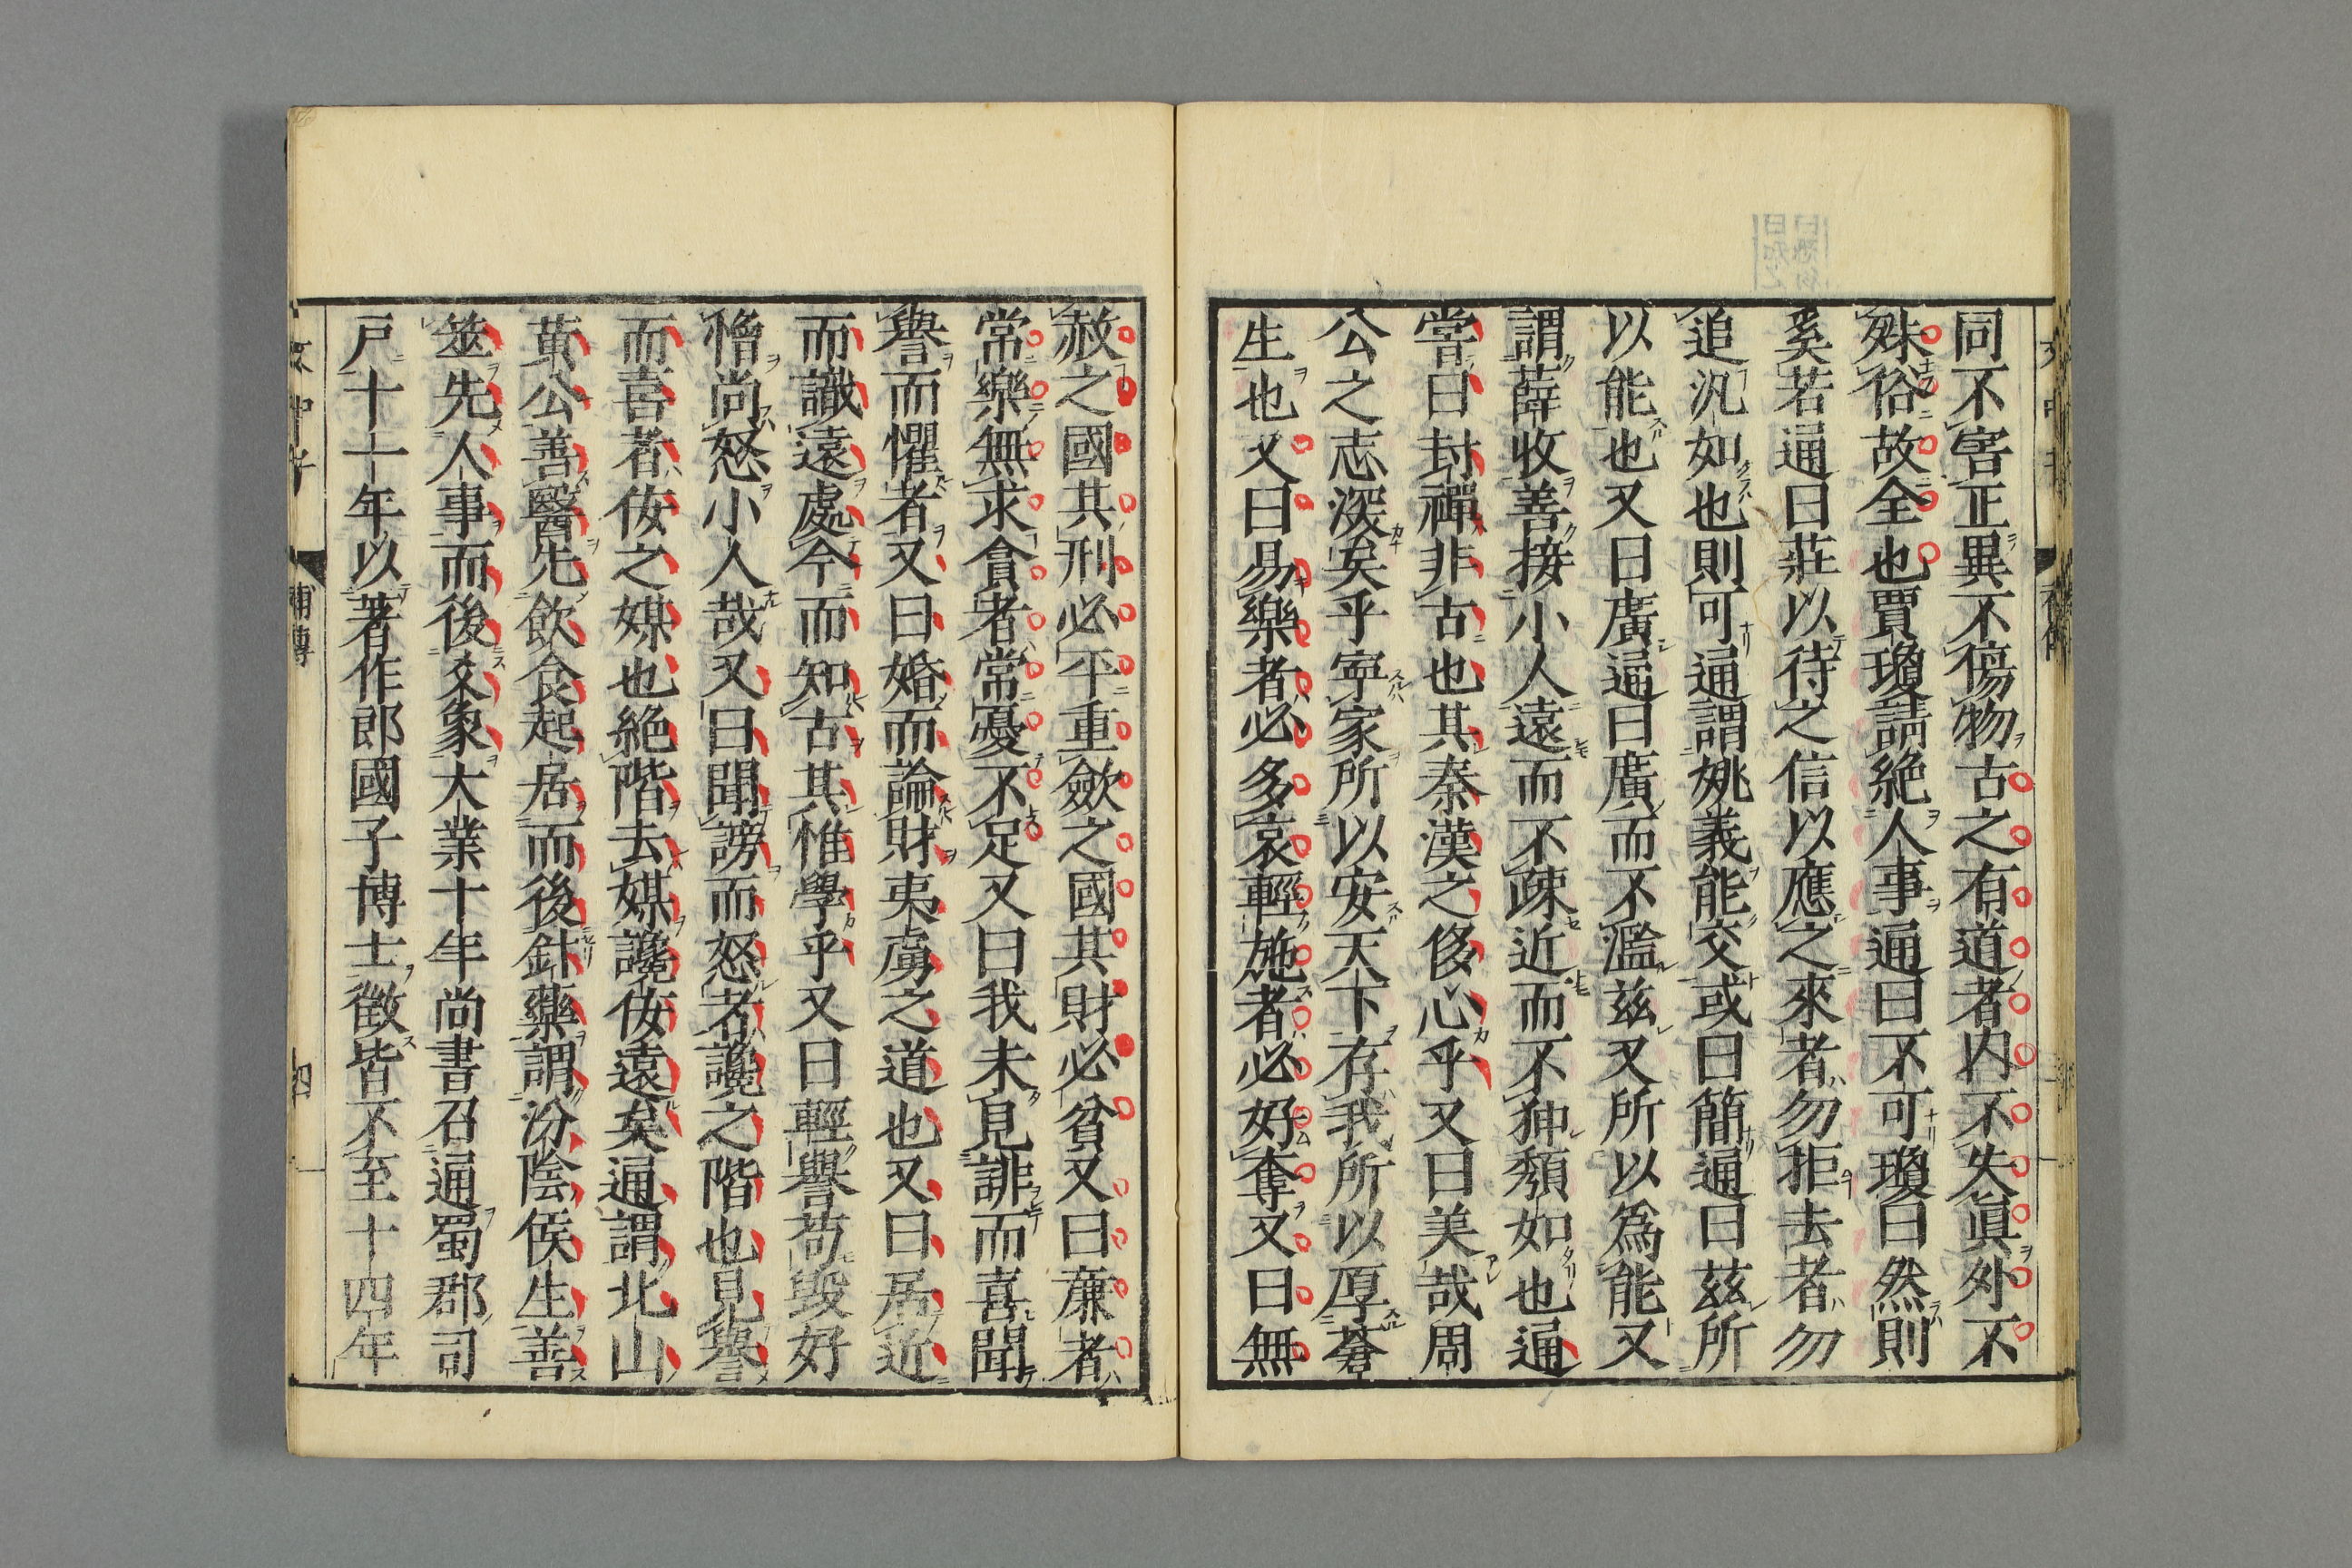 同不害正異不傷物古之有道者内不失眞外不
殊俗故全也賈瓊請絶人事通曰不可瓊曰然則
奚若通曰莊以待之信以應之來者勿拒去者勿
追汎如也則可通謂姚義能交或曰簡通曰茲所
以能也又曰廣通曰廣而不濫茲又所以爲能又
謂薛收善接小人遠而不疎近而不狎頽如也通
嘗曰封禪非古也其秦漢之侈心乎又曰美哉周
公之志深矣乎寧家所以安天下存我所以厚蒼
生也又曰易樂者必多哀輕施者必好奪又曰無
赦之國其刑必平重斂之國其財必貧又曰廉者
常樂無求貪者常憂不足又曰我未見誹而喜聞
譽而懼者又曰婚而論財夷虜之道也又曰居近
而識遠處今而知古其惟學乎又曰輕譽苟毀好
憎尚怒小人哉又曰聞謗而怒者讒之階也見譽
而喜者佞之媒也絶階去媒讒佞遠矣通謂北山
黄公善醫先飲食起居而後針藥謂汾陰侯生善
筮先人事而後爻象大業十年尚書召通蜀郡司
戸十一年以著作郎國子博士徴皆不至十四年
文中子
補傳
四